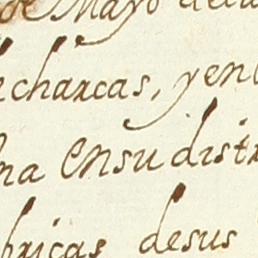 de Mayo
charcas, yen
na Ensu dist
bricas desus